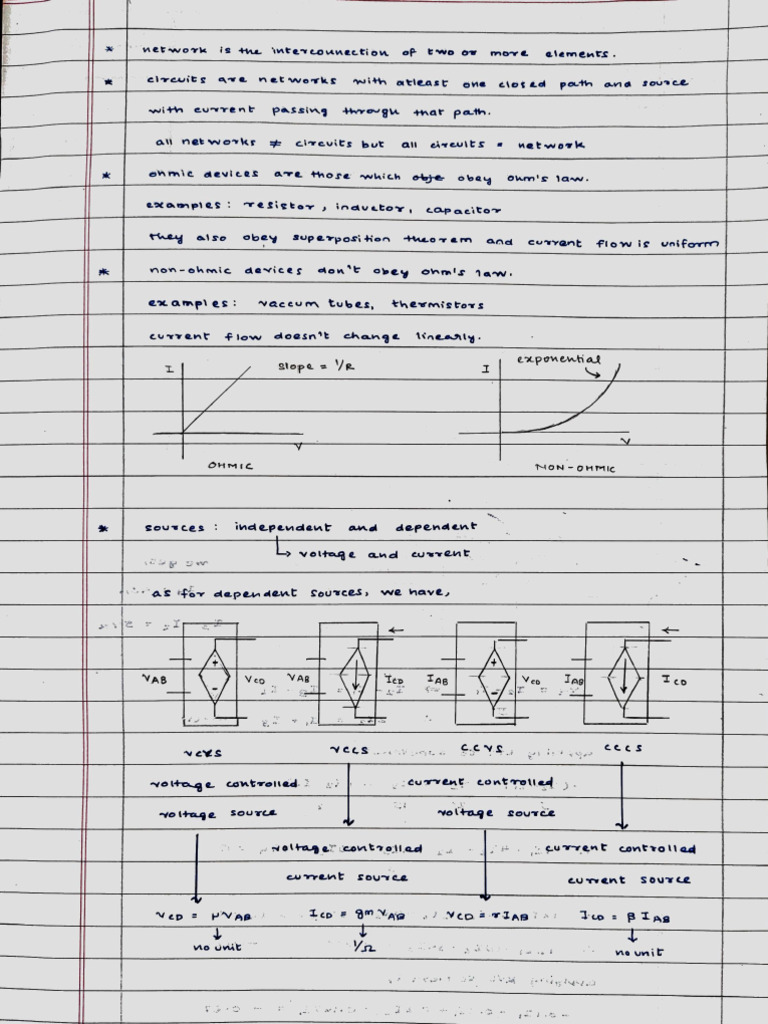 * network is the interconnection of two or more elements.
* circuits are networks with atleast one closed path and source
with current passing through that path.
all networks ≠ circuits but all circuits = network
* ohmic devices are those which obje obey ohm's law.
examples: resistor, inductor, capacitor
they also obey superposition theorem and current flow is uniform
* non-ohmic devices don't obey ohm's law.
examples: vaccum tubes, thermistors
current flow doesn't change linearly.
I slope = 1/R I exponential
V V
OHMIC NON-OHMIC
* sources: independent and dependent
↳ voltage and current
as for dependent sources, we have,
VAB + - VCD VAB ICD IAB + - VCD IAB ICD
VCVS VCCS CCVS CCCS
voltage controlled current controlled
voltage source voltage source
voltage controlled current controlled
current source current source
VCD = μVAB ICD = gm VAB VCD = rIAB ICD = β IAB
no unit 1/Ω no unit